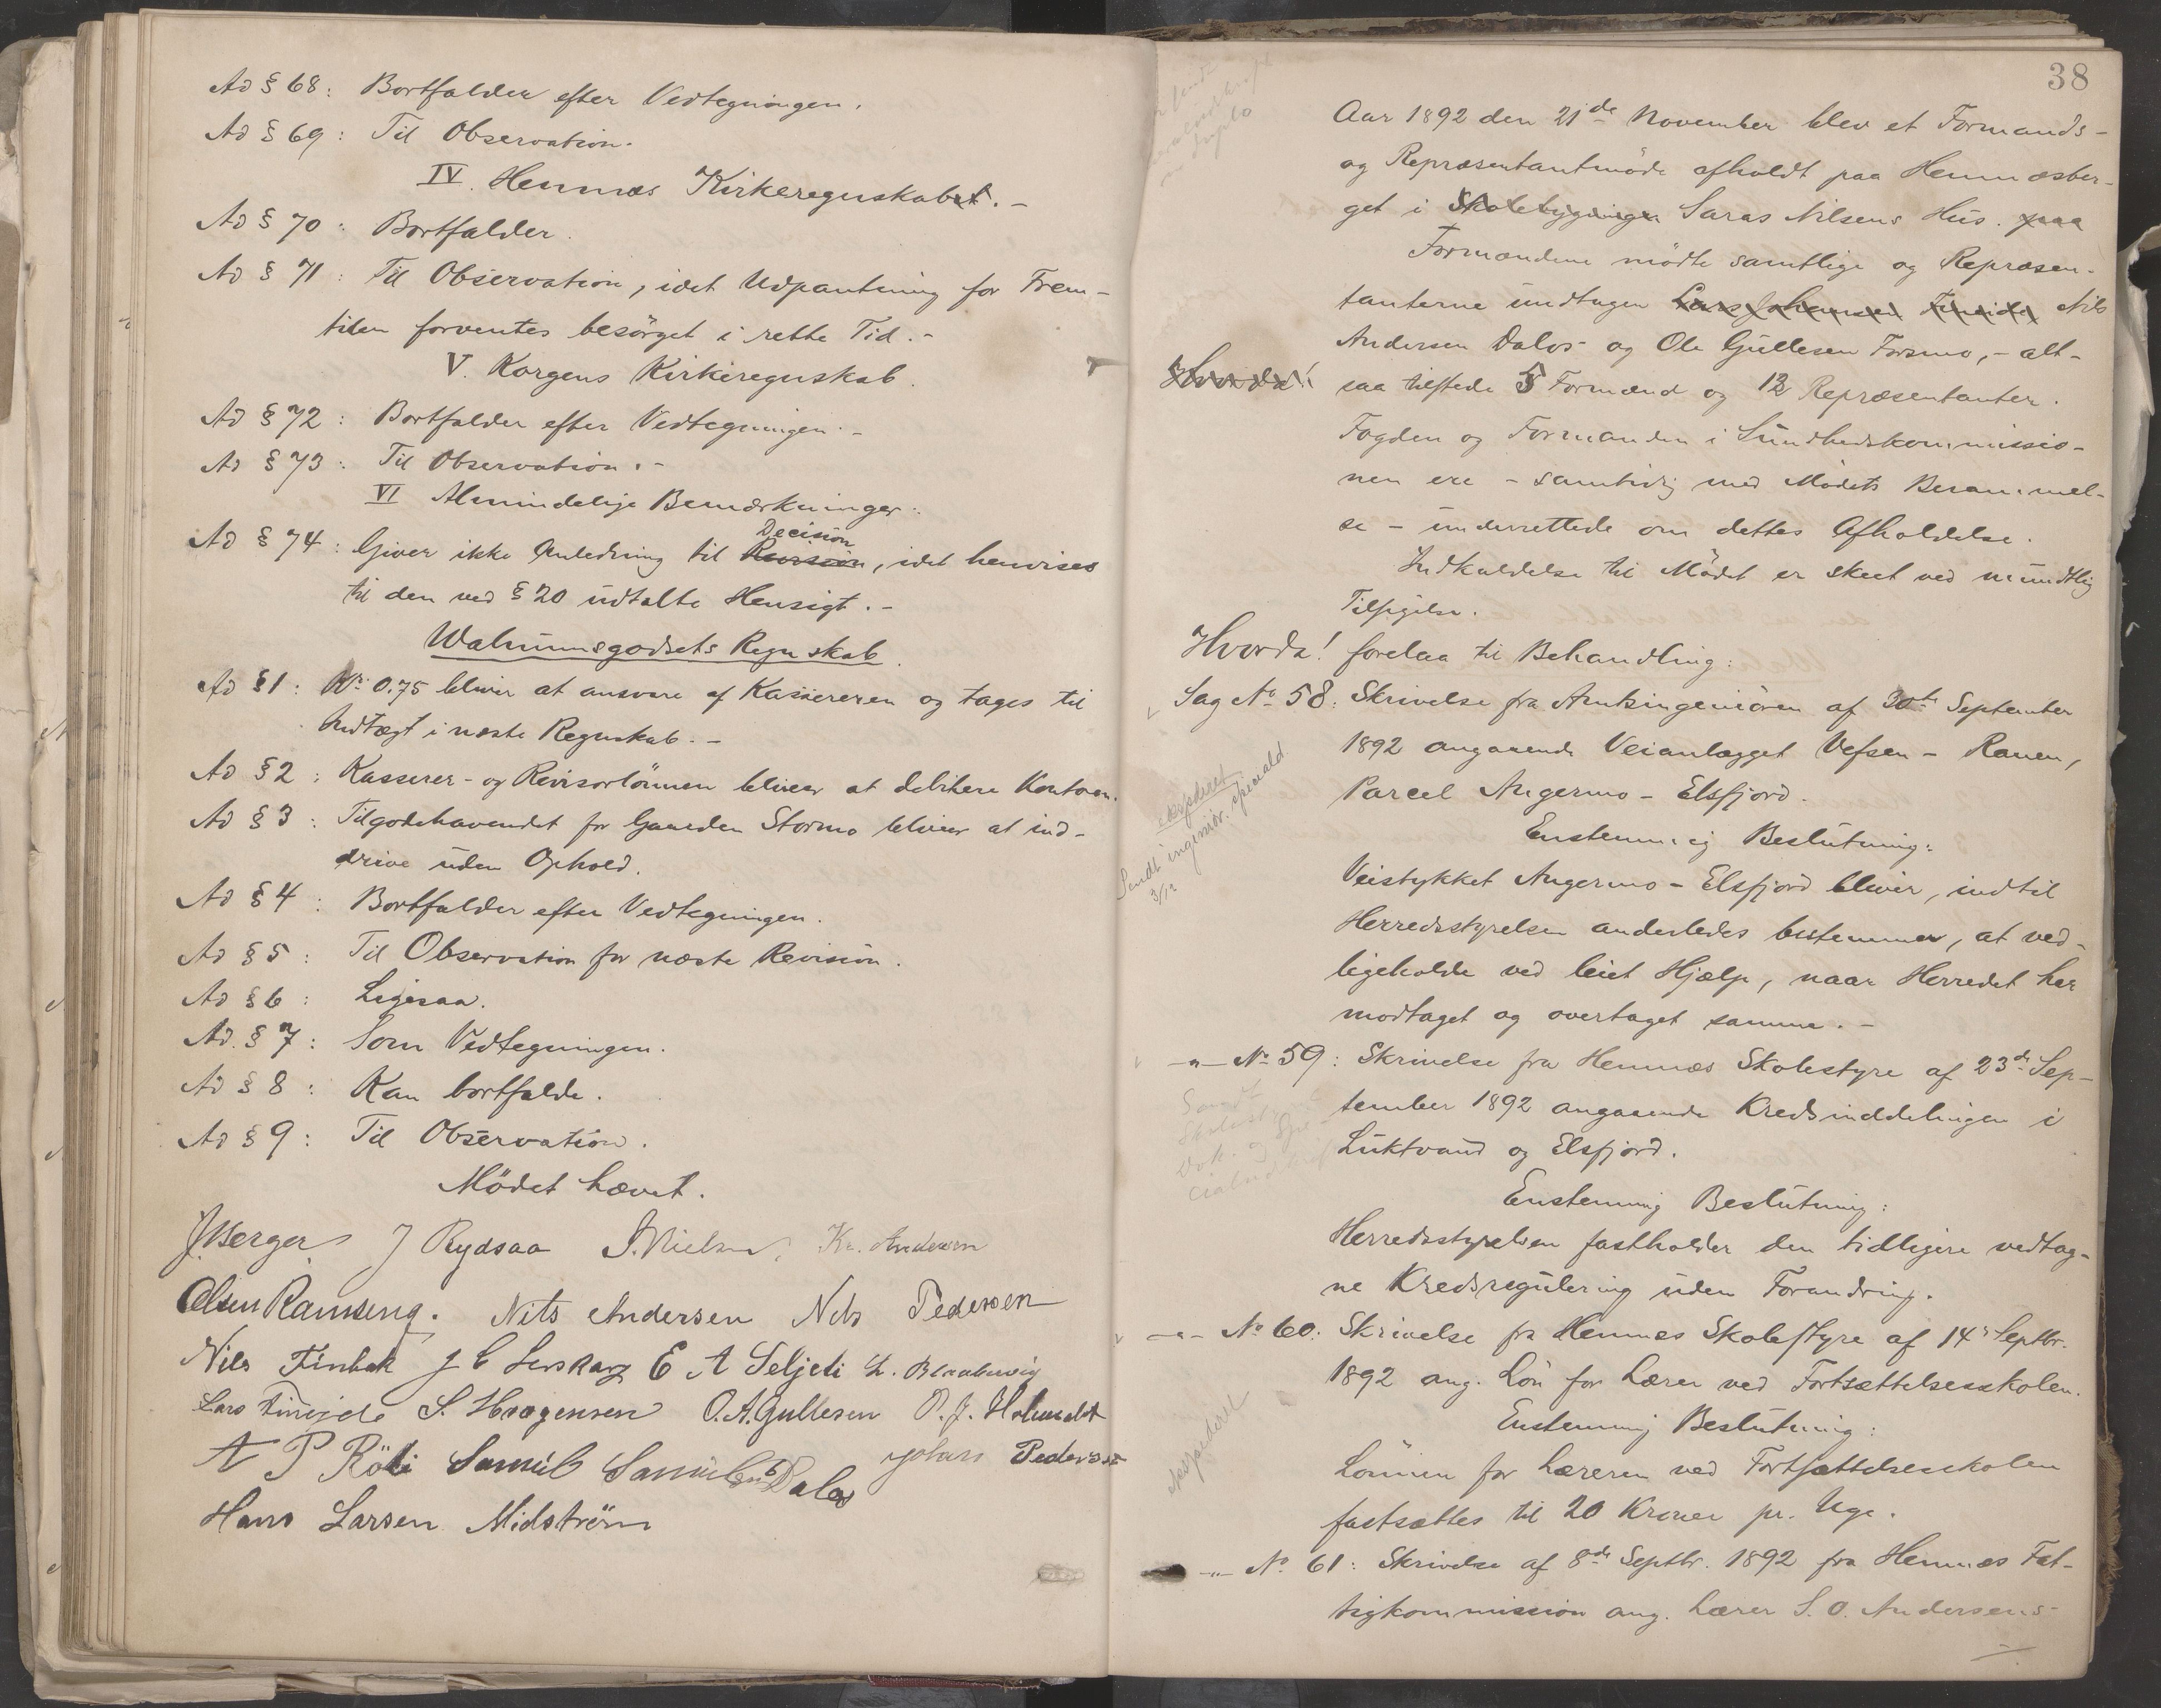 Ad § 68: Bortfalder efter Vedtegningen.
Ad § 69: Til Observation.
IV. Hemnæs Kirkeregnskabet. -
Ad § 70: Bortfalder.
Ad § 71: Til Observation, idet Udpantning for Frem-
tiden forventes besörget i rette Tid. -
V. Korgens Kirkeregnskab.
Ad § 72: Bortfalder efter Vedtegningen. -
Ad § 73: Til Observation. -
VI Almindelige Bemærkninger:
Decision
Ad § 74: Giver ikke Anledning til Revision, idet henvises
til den ved § 20 udtalte Hensigt. -
Walnumsgodsets Regnskab.
Ad § 1: Kr. 0.75 bliver at ansvare af Kassereren og tages til
Indtægt i næste Regnskab. -
Ad § 2: Kasserer- og Revisorlönnen bliver at debitere Kontoen.
Ad § 3: Tilgodehavendet for Gaarden Stormo bliver at ind-
drive uden Ophold.
Ad § 4: Bortfalder efter Vedtegningen.
Ad § 5: Til Observation for næste Revision.
Ad § 6: Ligesaa.
Ad § 7: Som Vedtegningen.
Ad § 8: Kan bortfalde.
Ad § 9: Til Observation.
Mödet hævet.
J. Berger J Rydsaa J. Nielsen Kr. Andersen
Olsen Ranseng. Nils Andersen Nels Pedersen
Nils Finbak J C E A Seljeli L.
Lars Fineide S. Haagensen O. A. Gullesen P. J. Holmslet
A P Röli Samuel Samuelsen Dalos Johan Pedersen
Hans Larsen Midström
38
Aar 1892 den 21de November blev et Formands-
og Repræsentantmöde afholdt paa Hemnæsber-
get i Skolebygningen Saras Nilsens Hus. paa
Formændene mödte samtlige og Repræsen-
tanterne undtagen Lars Johansen Fineide Nils
Andersen Dalos og Ole Gullesen Forsmo, - alt-
Hvorda!
saa tilstede 5 Formænd og 12 Repræsentanter.
Fogden og Formanden i Sundhedskommissio-
nen ere - samtidig med Mödets Berammel-
se - underrettede om dettes Afholdelse.
Indkaldelse til Mödet er skeet ved mundtlig
Tilsigelse.
Hvorda! forelaa til Behandling:
Sag No 58: Skrivelse fra Amtsingeniören af 30te September
1892 angaaende Veianlægget Vefsen - Ranen,
Parcel Angermo - Elsfjord.
Enstemmig Beslutning:
Sendt ingeniör.
3/12
Veistykket Angermo - Elsfjord bliver, indtil
Herredsstyrelsen anderledes bestemmer, at ved-
ligeholde ved leiet Hjælp, naar Herredet har
modtaget og overtaget samme. -
-"- No 59: Skrivelse fra Hemnæs Skolestyre af 23de Sep-
tember 1892 angaaende Kredsinddelingen i
Luktvand og Elsfjord.
Enstemmig Beslutning:
Herredsstyrelsen fastholder den tidligere vedtag-
ne Kredsregulering uden Forandring.
-"- No 60: Skrivelse fra Hemnæs Skolestyre af 14de Septbr.
1892 ang. Lön for Lærer ved Fortsættelsesskolen.
Enstemmig Beslutning:
Lönnen for Læreren ved Fortsættelsesskolen
fastsættes til 20 Kroner pr. Uge.
-"- No 61: Skrivelse af 8de Septbr. 1892 fra Hemnæs Fat-
tigkommission ang. Lærer S. O. Andersens